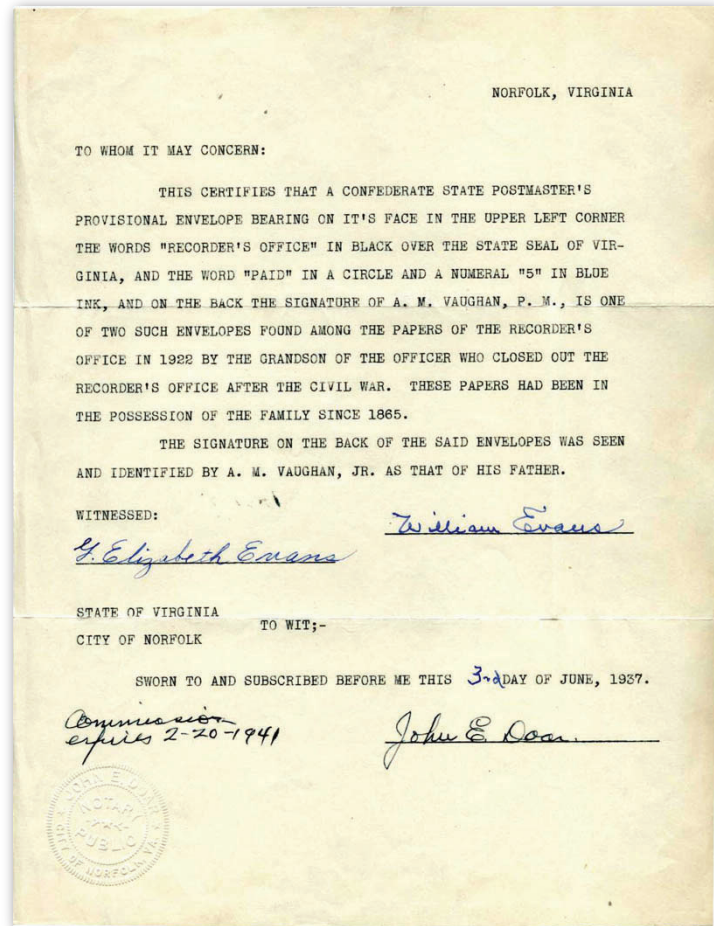 NORFOLK, VIRGINIA
TO WHOM IT MAY CONCERN:
THIS CERTIFIES THAT A CONFEDERATE STATE POSTMASTER'S
PROVISIONAL ENVELOPE BEARING ON IT'S FACE IN THE UPPER LEFT CORNER
THE WORDS "RECORDER'S OFFICE" IN BLACK OVER THE STATE SEAL OF VIR-
GINIA, AND THE WORD "PAID" IN A CIRCLE AND A NUMERAL "5" IN BLUE
INK, AND ON THE BACK THE SIGNATURE OF A. M. VAUGHAN, P. M., IS ONE
OF TWO SUCH ENVELOPES FOUND AMONG THE PAPERS OF THE RECORDER'S
OFFICE IN 1922 BY THE GRANDSON OF THE OFFICER WHO CLOSED OUT THE
RECORDER'S OFFICE AFTER THE CIVIL WAR. THESE PAPERS HAD BEEN IN
THE POSSESSION OF THE FAMILY SINCE 1865.
THE SIGNATURE ON THE BACK OF THE SAID ENVELOPES WAS SEEN
AND IDENTIFIED BY A. M. VAUGHAN, JR. AS THAT OF HIS FATHER.
WITNESSED:
William Evans
G. Elizabeth Evans
STATE OF VIRGINIA
TO WIT;-
CITY OF NORFOLK
SWORN TO AND SUBSCRIBED BEFORE ME THIS 3rd DAY OF JUNE, 1937.
Commission
expires 2-20-1941
John E. Doar
JOHN E. DOAR
NOTARY
PUBLIC
CITY OF NORFOLK, VA.